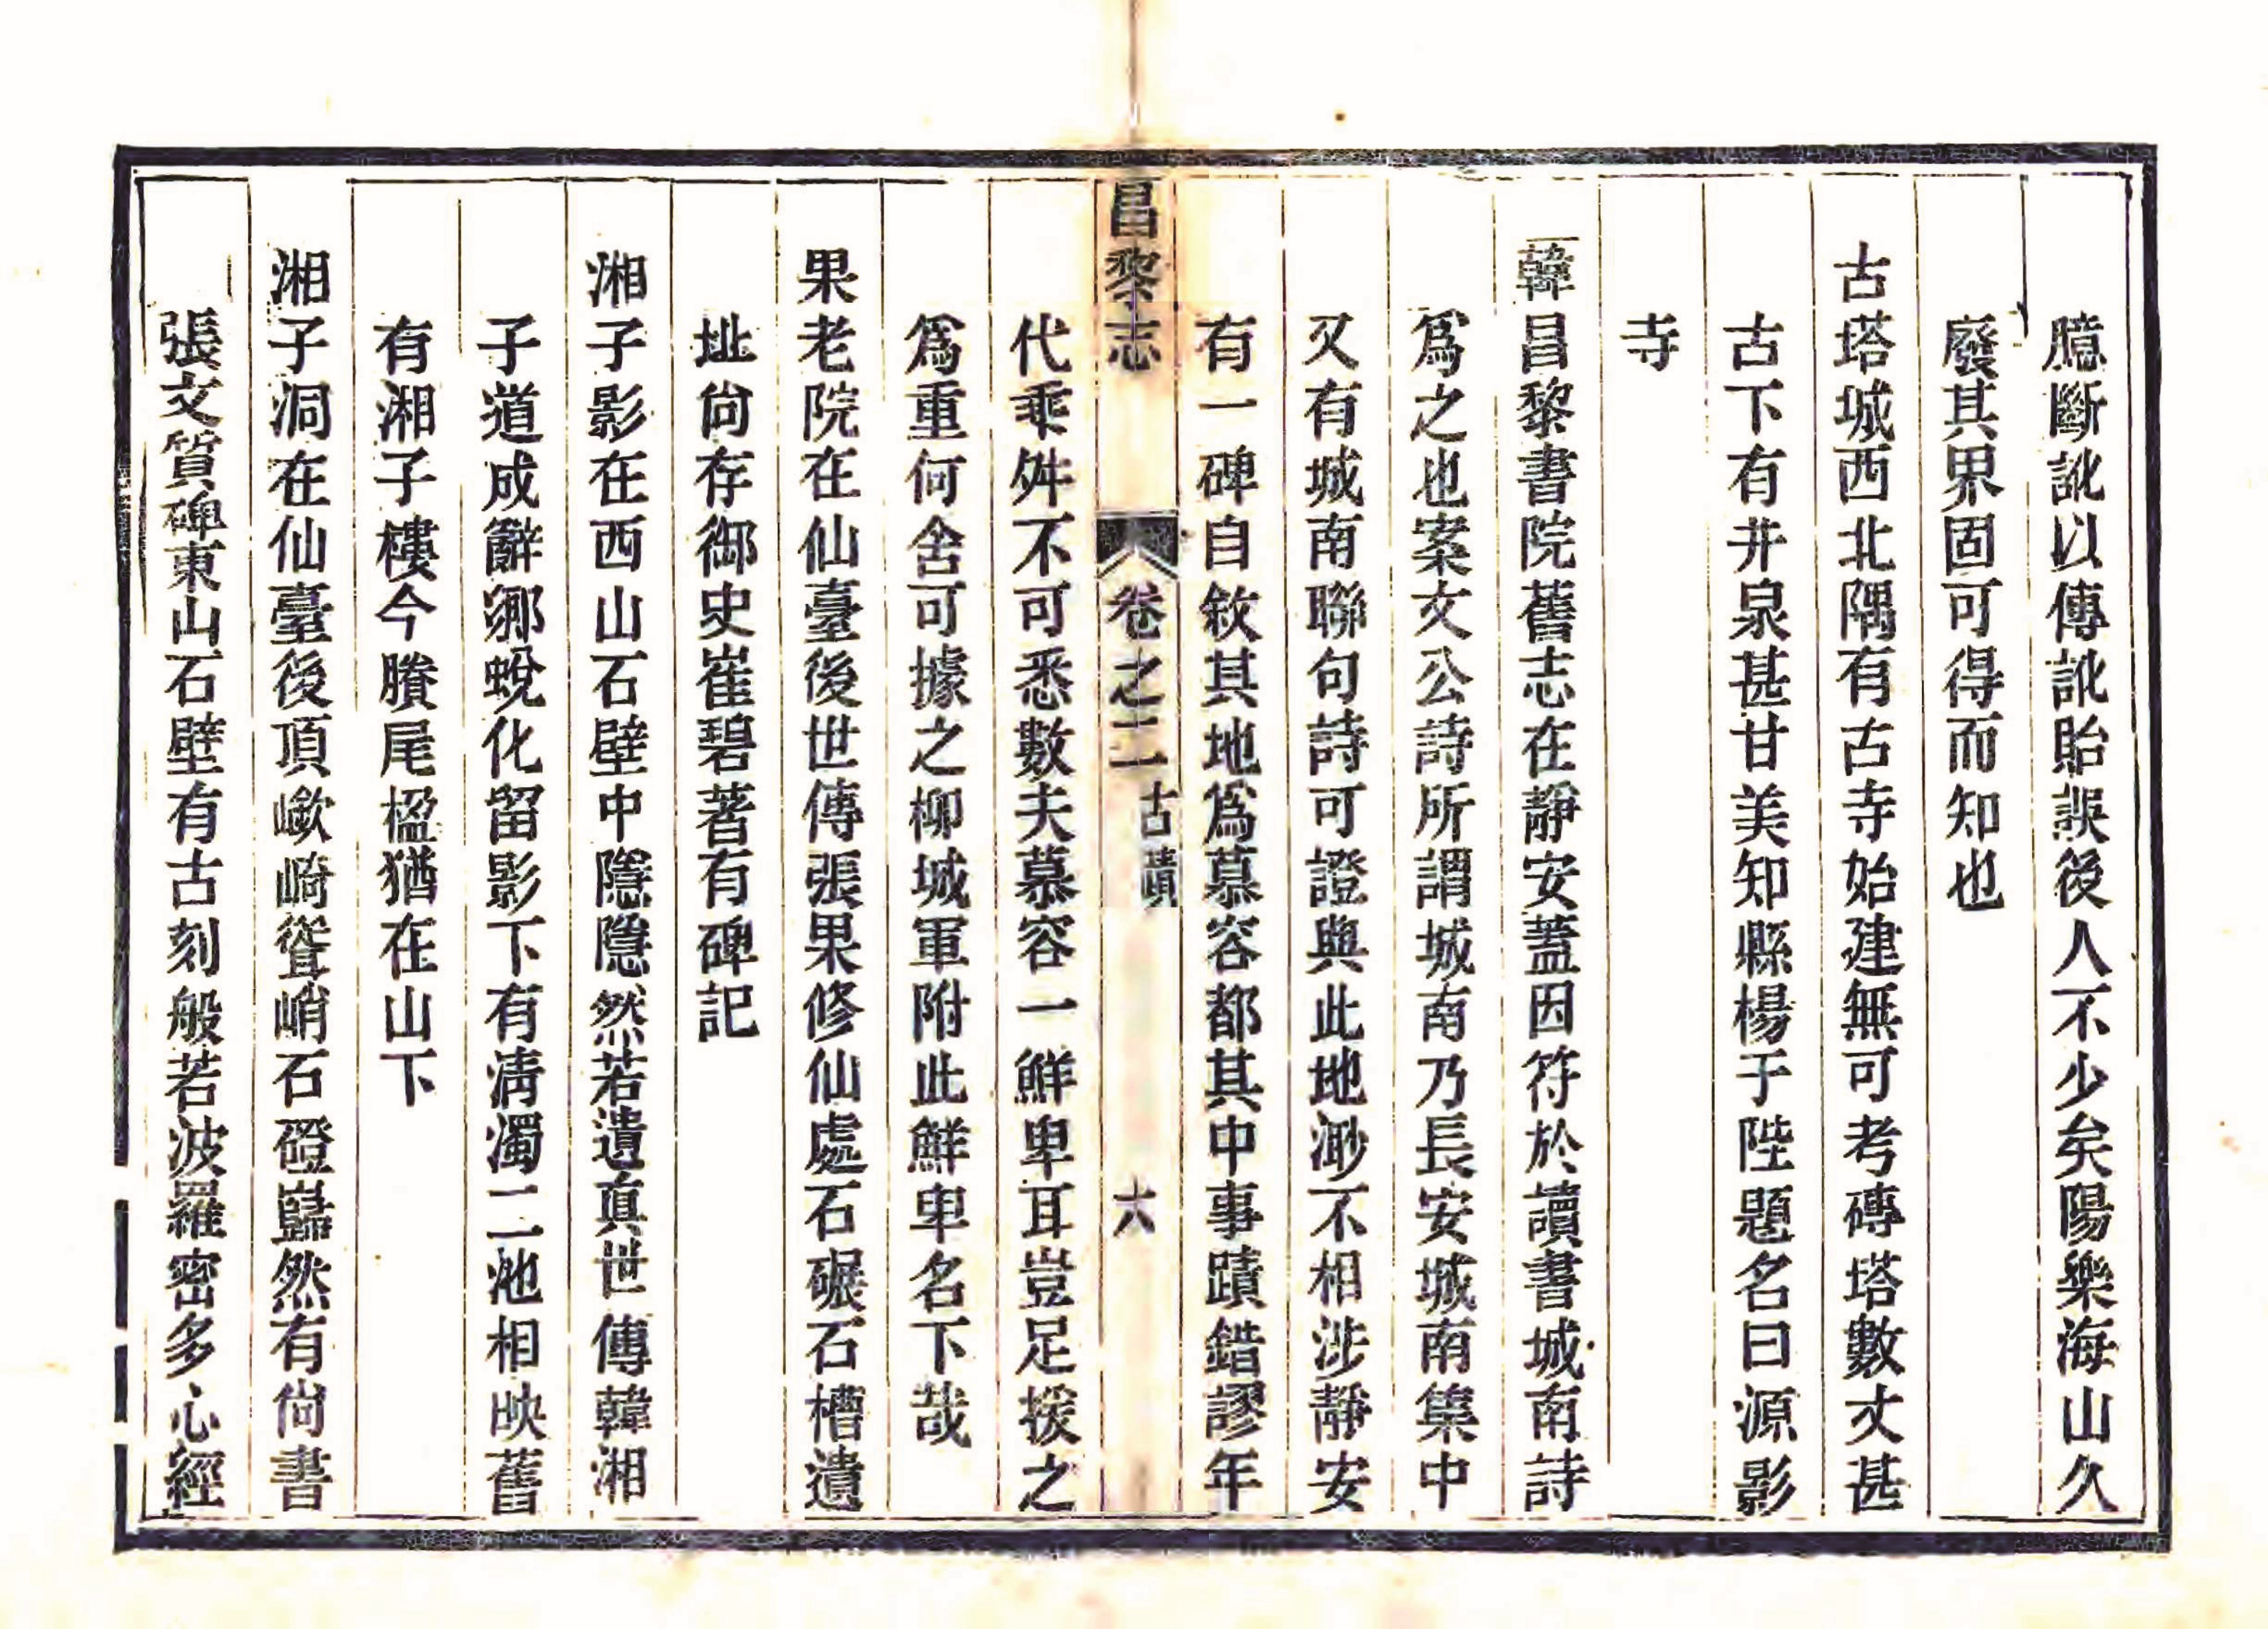 臆斷訛以傳訛貽誤後人不少矣陽樂海山久
廢其界固可得而知也
古塔城西北隅有古寺始建無可考磚塔數丈甚
古下有井泉甚甘美知縣楊于陛題名曰源影
寺
韓昌黎書院舊志在靜安蓋因符於讀書城南詩
爲之也案文公詩所謂城南乃長安城南集中
又有城南聯句詩可證與此地渺不相涉靜安
有一碑自敘其地爲慕容都其中事蹟錯謬年
昌黎志 卷之二 古蹟 六
代乖舛不可悉數夫慕容一鮮卑耳豈足援之
爲重何舍可據之柳城軍附此鮮卑名下哉
果老院在仙臺後世傳張果修仙處石碾石槽遺
址尙存御史崔碧著有碑記
湘子影在西山石壁中隱隱然若遺真世傳韓湘
子道成辭鄉蛻化留影下有淸濁二池相映舊
有湘子樓今賸尾楹猶在山下
湘子洞在仙臺後頂嶔崎聳峭石磴巋然有尙書
張文質碑東山石壁有古刻般若波羅密多心經